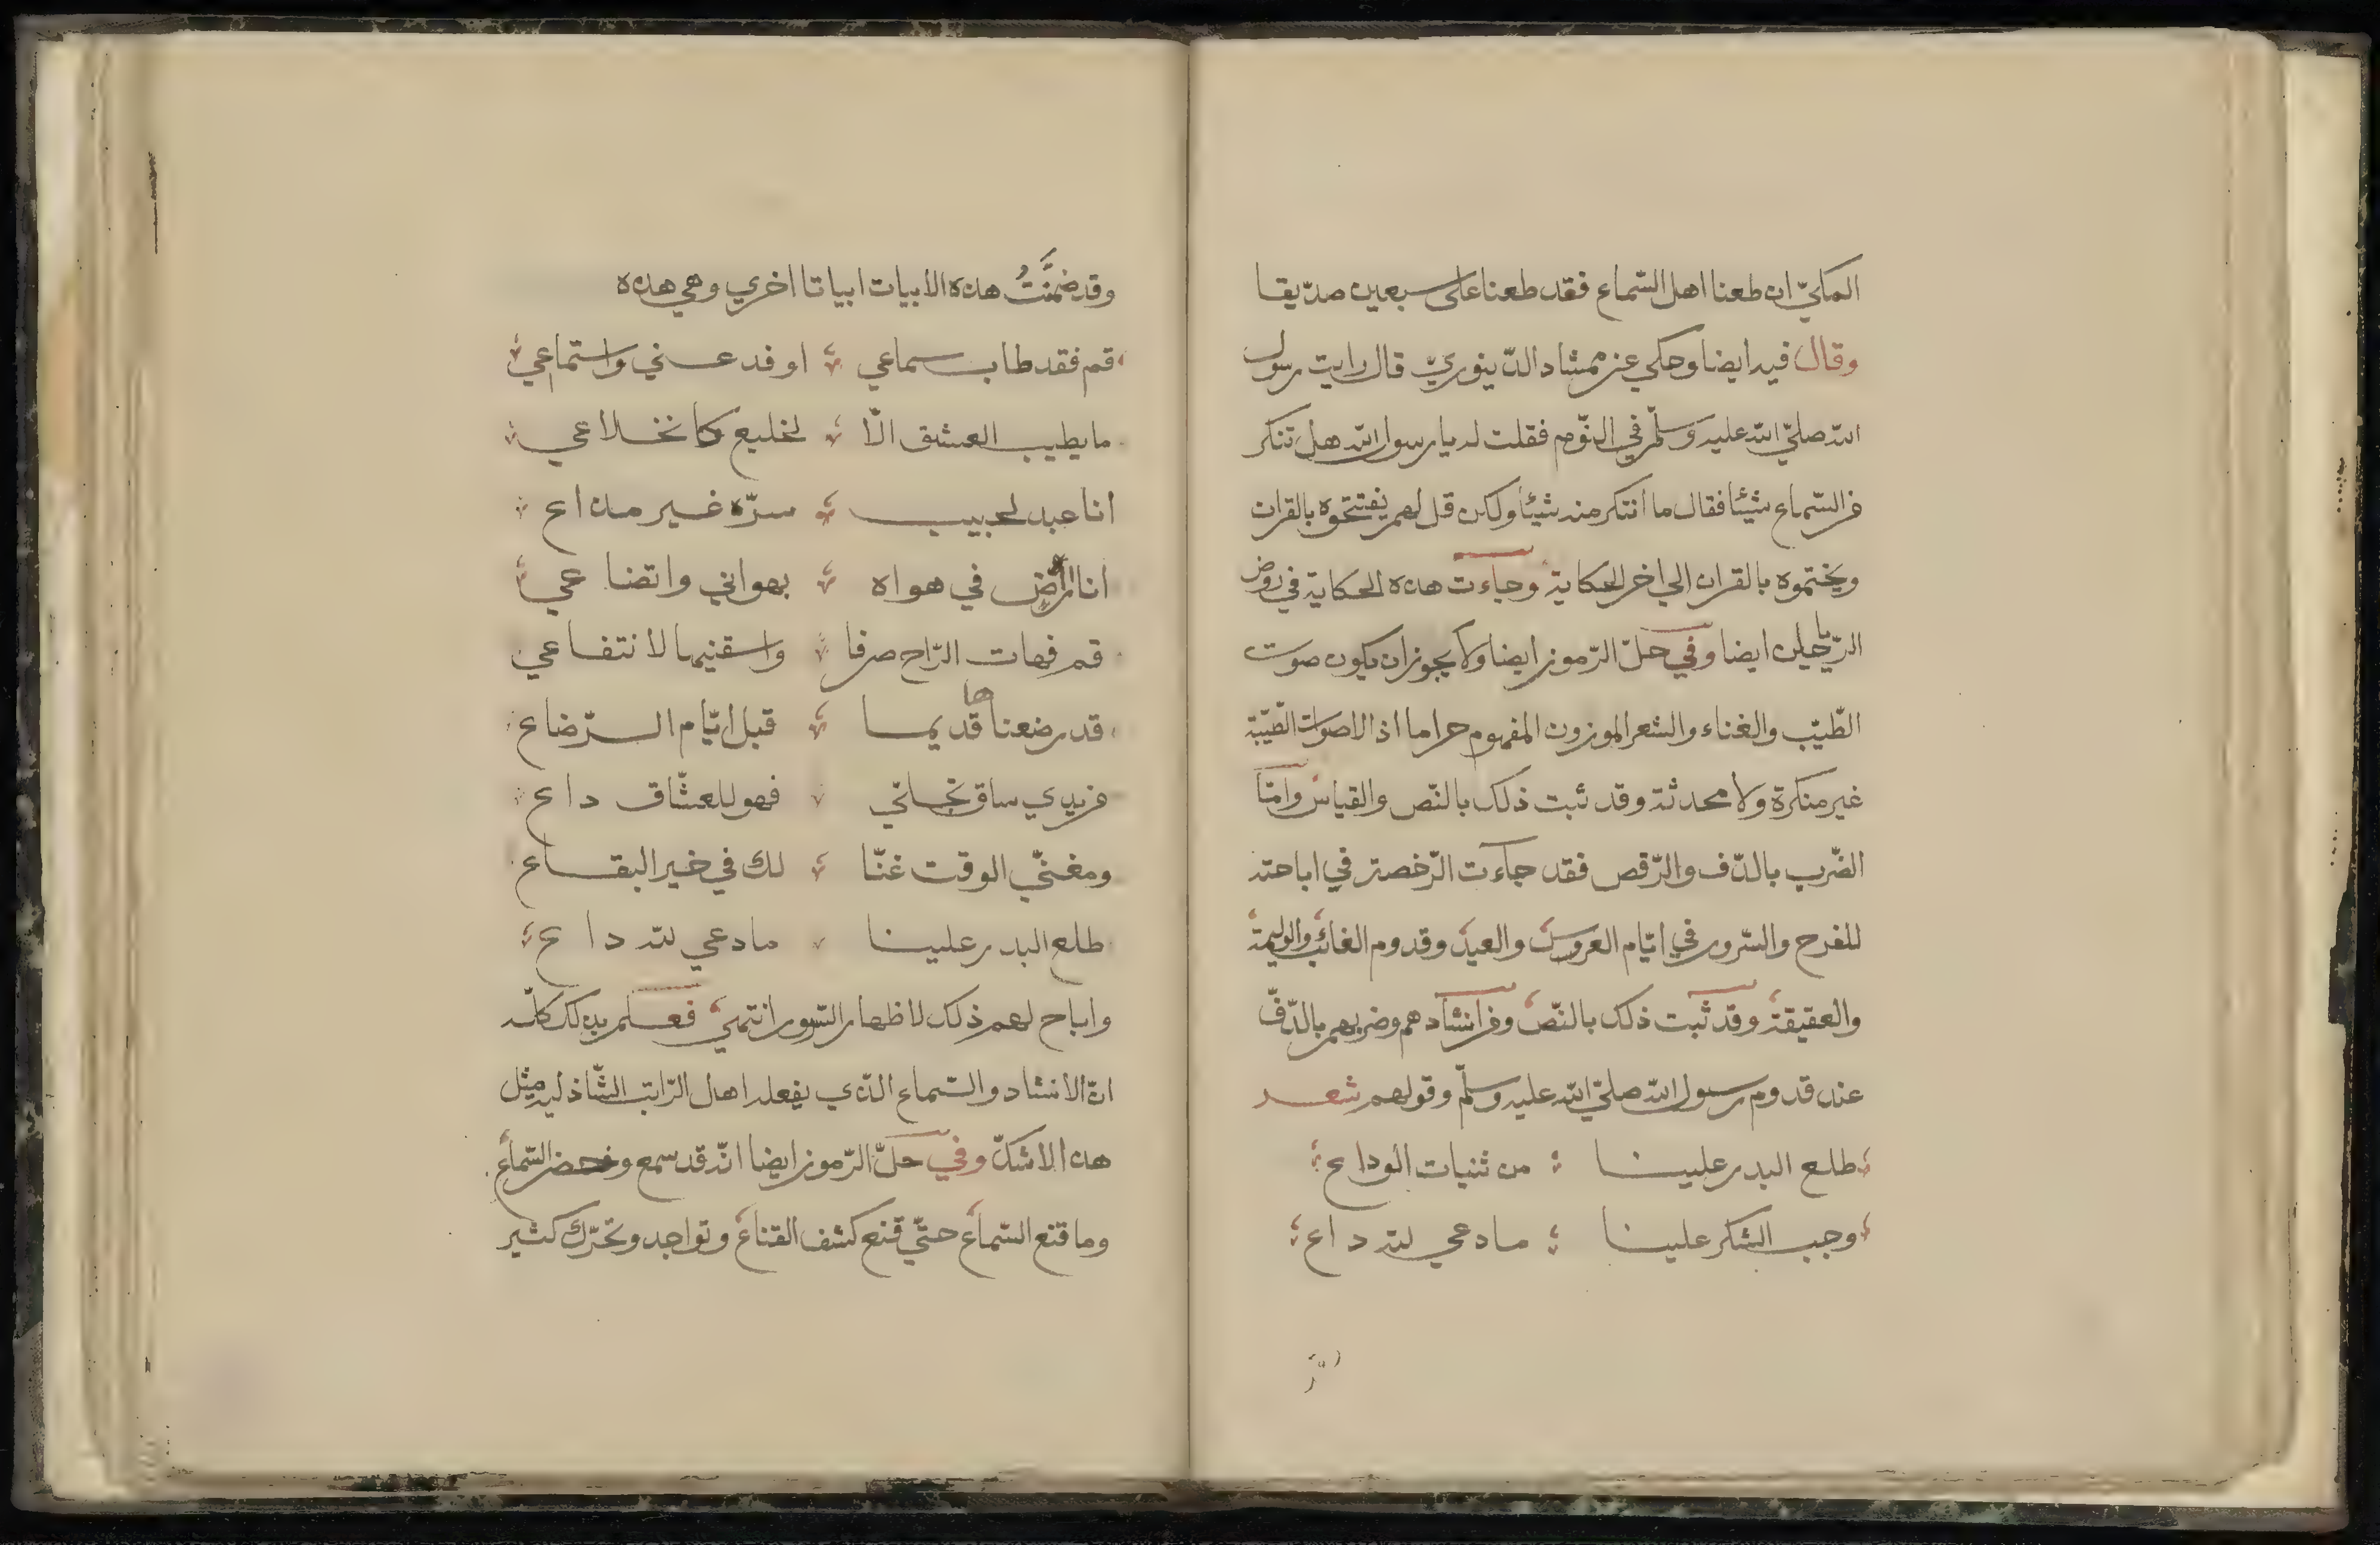 المكيّ ان طعنا اهل السّماع فقد طعنا على سبعين صدّيقا
وقال فيه ايضا وحكي عن ممشاد الدّينوريّ قال رايت رسول
الله صلّي الله عليه وسلّم في النّوم فقلت له يا رسول الله هل تنكر
من السّماع شيئا فقال ما انتكر منه شيئا ولكن قل لهم يفتتحوه بالقران
ويختموه بالقران الي اخر الحكاية وجاءت هذه الحكاية في روض
الرّياحين ايضا وفي حلّ الرّموز ايضا ولا يجوز ان يكون صوت
الطّيّب والغناء والشعر الموزون المفهوم حراما اذ الاصوات الطّيّبة
غير منكرة ولا محدثة وقد ثبت ذلك بالنّص والقياس وامّا
الضّرب بالدّف والرّقص فقد جاءت الرّخصة في اباحته
للفرح والسّرور في ايّام العروس والعيد وقدوم الغائب والوليمة
والعقيقة وقد ثبت ذلك بالنّص ومن انشادهم وضربهم بالدّفّ
عند قدوم رسول الله صلّي الله عليه وسلّم وقولهم شعر
طلع البدر علينا من ثنيات الوداع
وجب الشكر علينا ما دعي لله داع
وقد ضمّنت هذه الابيات ابياتا اخري وهي هذه
قم فقد طاب سماعي او فدعني واستماعي
ما يطيب العشق الّا لخليع كانخلاعي
انا عبد لحبيب سرّه غير مذاع
انا راض في هواه بهواني واتضاعي
قم فهات الرّاح صرفا واسقنيها لانتفاعي
قد رضعناها قديما قبل ايّام الرّضاع
من يدي ساق تجلّي فهو للعشّاق داع
ومغنّي الوقت غنّا لك في خير البقاع
طلع البدر علينا ما دعي لله داع
واباح لهم ذلك لاظهار السّرور انتهي فعلم بذلك كلّه
انّ الانشاد والسّماع الّذي يفعله اهل الرّاتب الشّاذليه مثل
هذا لا شكّ وفي حلّ الرّموز ايضا انّه قد سمع وحضر السّماع
وما قنع السّماع حتّي قنع كشف القناع وتواجد وتحرّك كثير